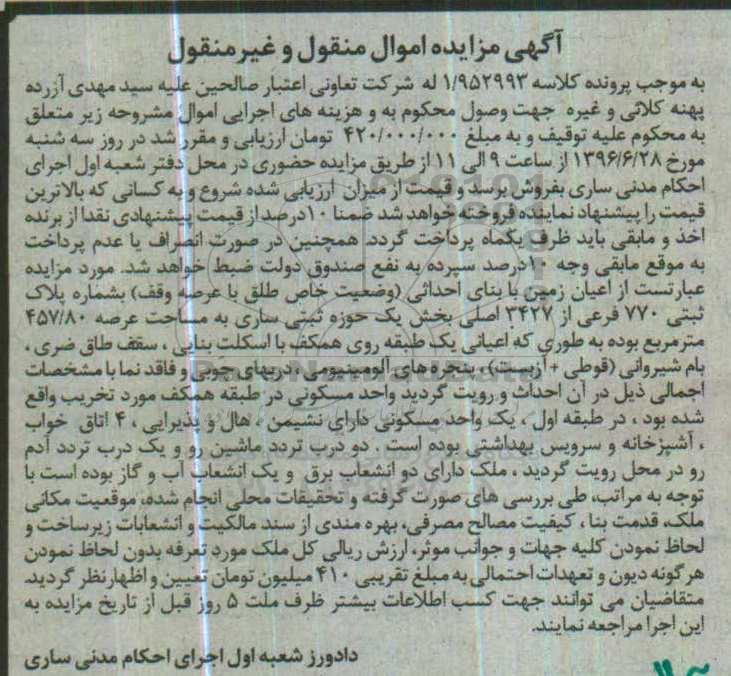 آگهی مزایده اموال منقول و غیرمنقول
به موجب پرونده کلاسه ۱/۹۵۲۹۹۳ له شرکت تعاونی اعتبار صالحین علیه سید مهدی آزرده
پهنه کلائی و غیره جهت وصول محکوم به و هزینه های اجرایی اموال مشروحه زیر متعلق
به محکوم علیه توقیف و به مبلغ ۴۲۰/۰۰۰/۰۰۰ تومان ارزیابی و مقرر شد در روز سه شنبه
مورخ ۱۳۹۶/۶/۲۸ از ساعت ۹ الی ۱۱ از طریق مزایده حضوری در محل دفتر شعبه اول اجرای
احکام مدنی ساری بفروش برسد و قیمت از میزان ارزیابی شده شروع و به کسانی که بالاترین
قیمت را پیشنهاد نماینده فروخته خواهد شد ضمنا ۱۰درصد از قیمت پیشنهادی نقدا از برنده
اخذ و مابقی باید ظرف یکماه پرداخت گردد. همچنین در صورت انصراف یا عدم پرداخت
به موقع مابقی وجه ۱۰درصد سپرده به نفع صندوق دولت ضبط خواهد شد. مورد مزایده
عبارتست از اعیان زمین با بنای احداثی (وضعیت خاص طلق با عرصه وقف) بشماره پلاک
ثبتی ۷۷۰ فرعی از ۳۴۲۷ اصلی بخش یک حوزه ثبتی ساری به مساحت عرصه ۴۵۷/۸۰
مترمربع بوده به طوری که اعیانی یک طبقه روی همکف با اسکلت بنایی ، سقف طاق ضری ،
بام شیروانی (قوطی + آزبست) ، پنجره های آلومینیومی ، دربهای چوبی و فاقد نما با مشخصات
اجمالی ذیل در آن احداث و رویت گردید واحد مسکونی در طبقه همکف مورد تخریب واقع
شده بود ، در طبقه اول ، یک واحد مسکونی دارای نشیمن ، هال و پذیرایی ، ۴ اتاق خواب
، آشپزخانه و سرویس بهداشتی بوده است . دو درب تردد ماشین رو و یک درب تردد آدم
رو در محل رویت گردید ، ملک دارای دو انشعاب برق و یک انشعاب آب و گاز بوده است با
توجه به مراتب، طی بررسی های صورت گرفته و تحقیقات محلی انجام شده، موقعیت مکانی
ملک، قدمت بنا ، کیفیت مصالح مصرفی، بهره مندی از سند مالکیت و انشعابات زیرساخت و
لحاظ نمودن کلیه جهات و جوانب موثر، ارزش ریالی کل ملک مورد تعرفه بدون لحاظ نمودن
هر گونه دیون و تعهدات احتمالی به مبلغ تقریبی ۴۱۰ میلیون تومان تعیین و اظهارنظر گردید.
متقاضیان می توانند جهت کسب اطلاعات بیشتر ظرف ملت ۵ روز قبل از تاریخ مزایده به
این اجرا مراجعه نمایند.
دادورز شعبه اول اجرای احکام مدنی ساری